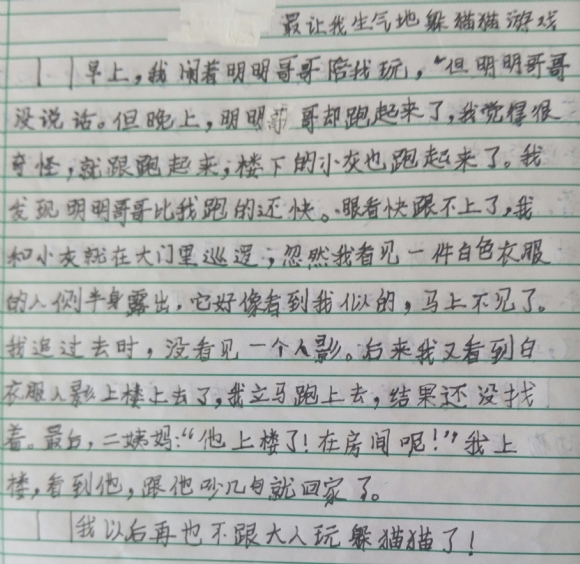 最让我生气地躲猫猫游戏
早上,我闹着明明哥哥陪我玩,“但明明哥哥
没说话。但晚上,明明哥哥却跑起来了,我觉得很
奇怪,就跟跑起来,楼下的小灰也跑起来了。我
发现明明哥哥比我跑的还快。眼看快跟不上了,我
和小灰就在大门里巡逻,忽然我看见一件白色衣服
的人侧半身露出,它好像看到我似的,马上不见了。
我追过去时,没看见一个人影。后来我又看到白
衣服人影上楼上去了,我立马跑上去,结果还没找
着。最后,二姨妈:“他上楼了!在房间呢!”我上
楼,看到他,跟他吵几句就回家了。
我以后再也不跟大人玩躲猫猫了!